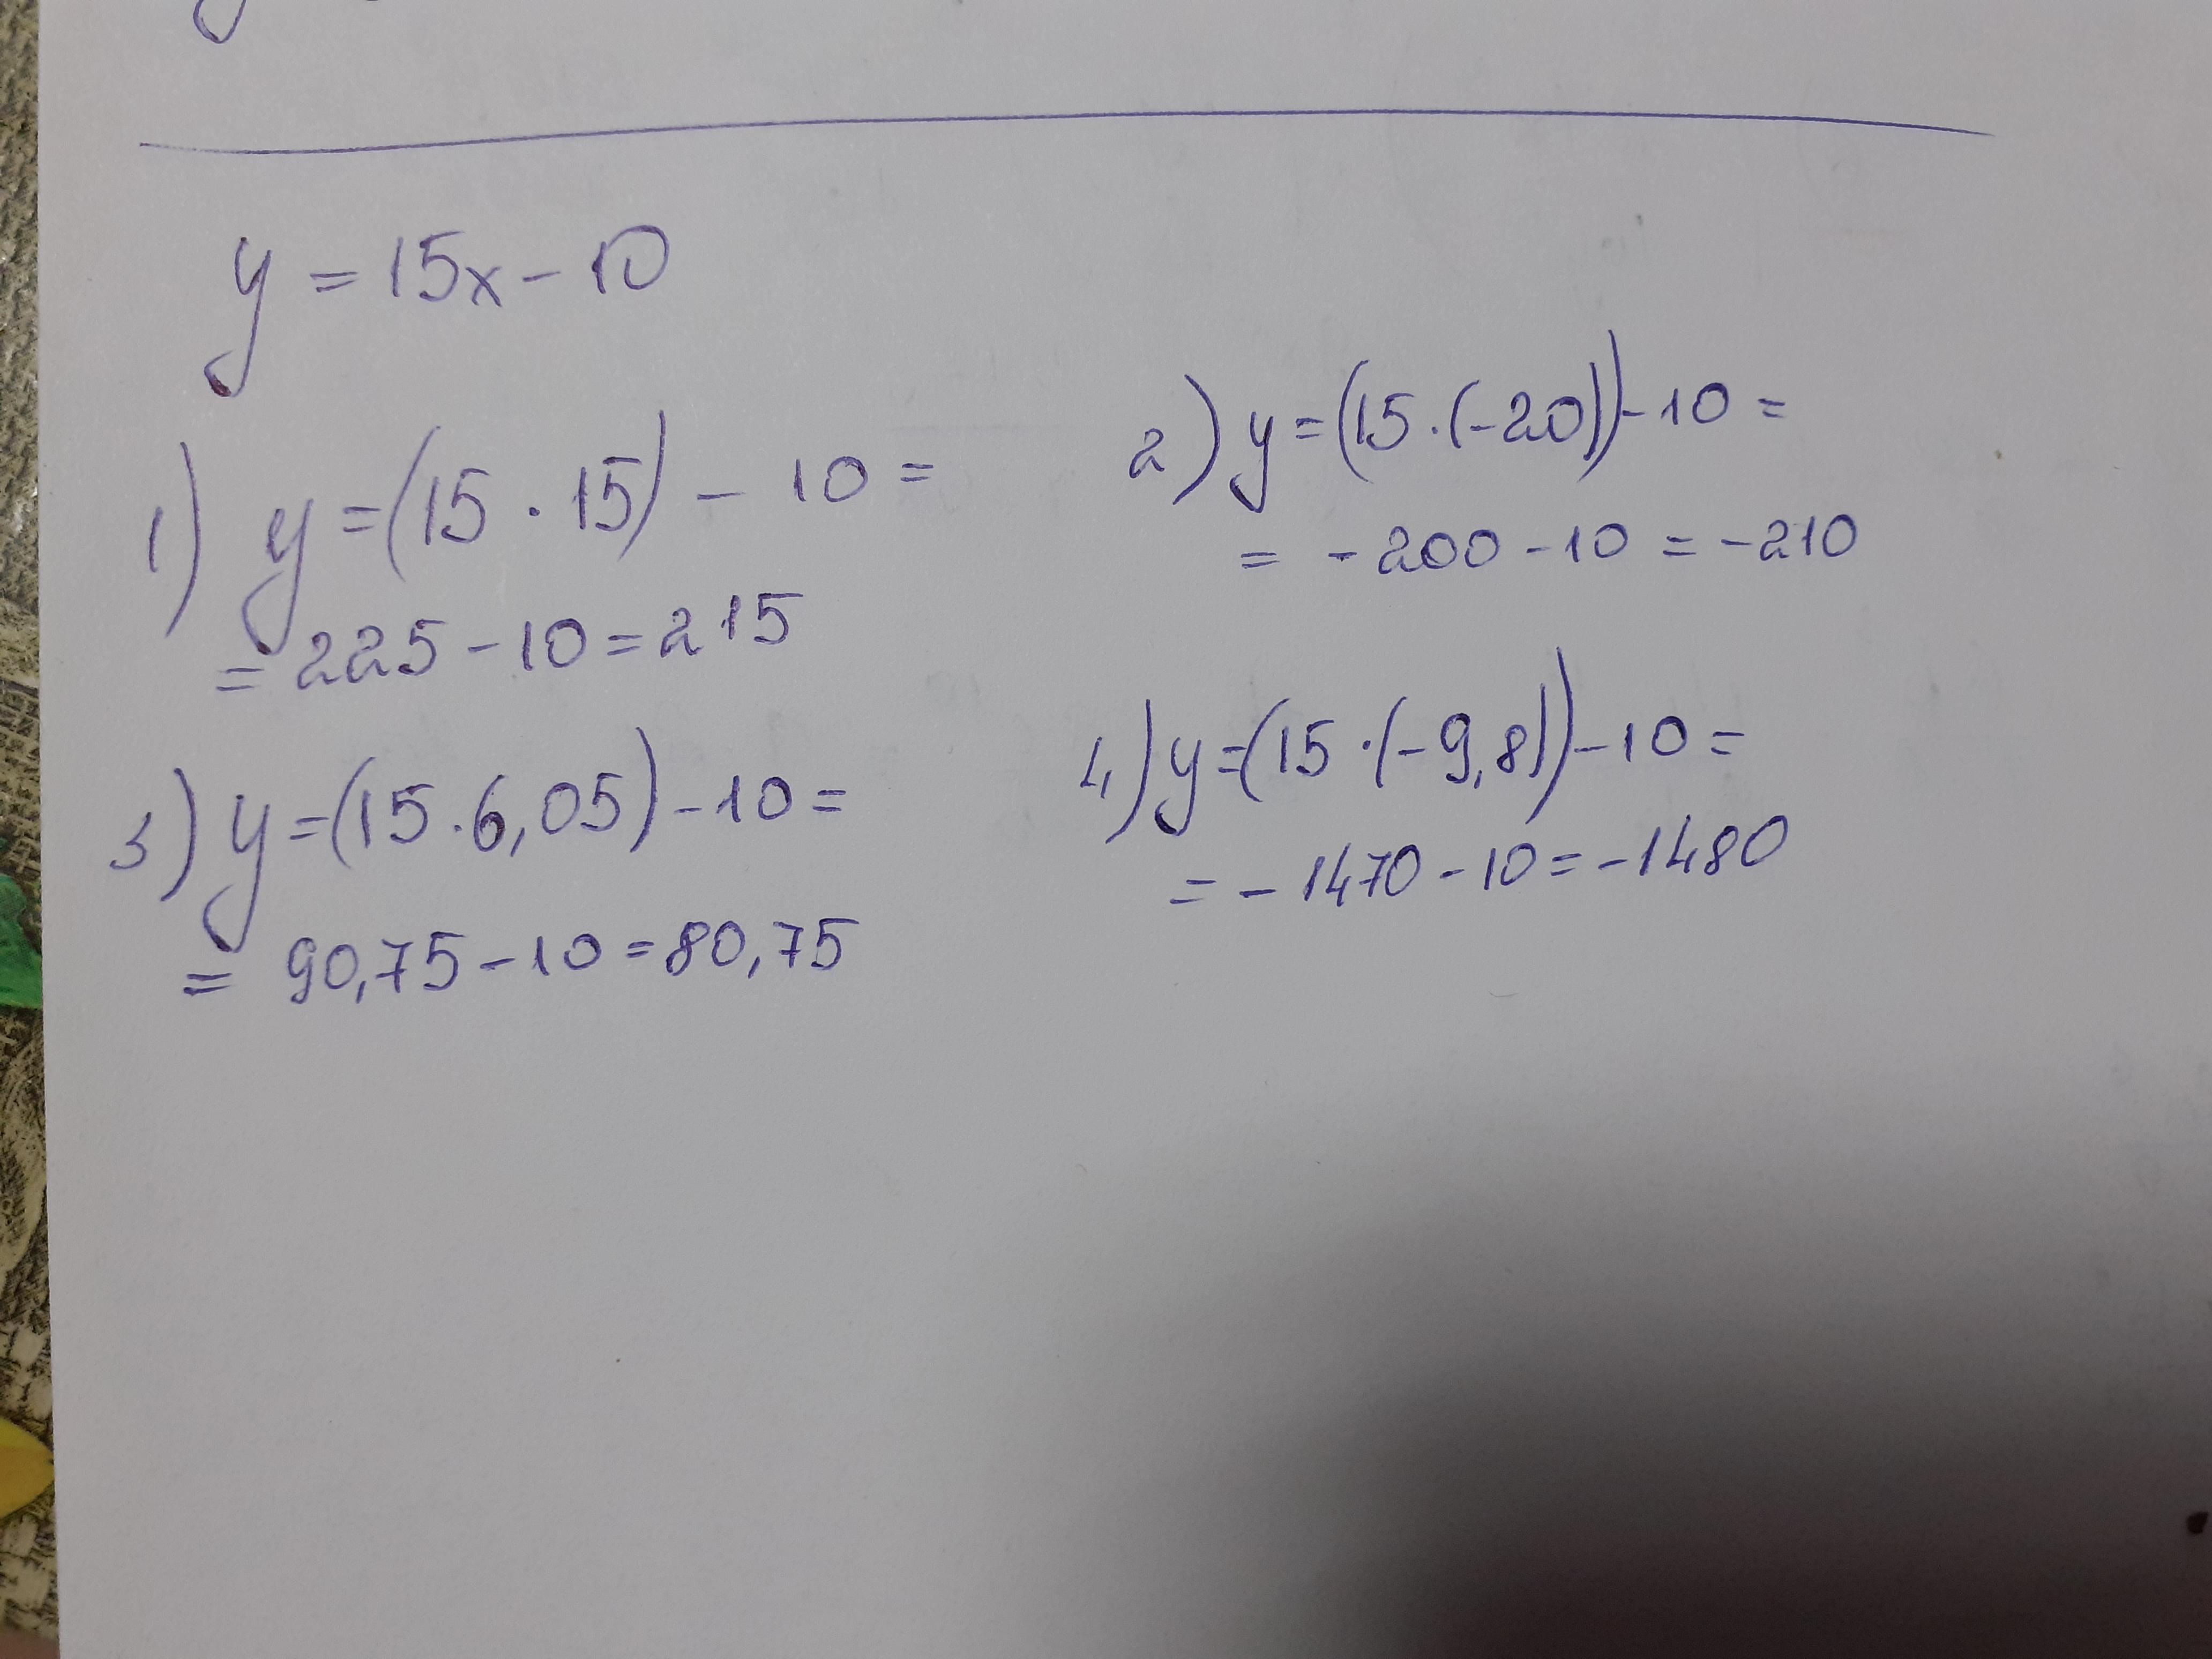 y = 15x - 10
1) y = (15 · 15) - 10 =
= 225 - 10 = 215
2) y = (15 · (-20)) - 10 =
= - 200 - 10 = -210
3) y = (15 · 6,05) - 10 =
= 90,75 - 10 = 80,75
4) y = (15 · (-9,8)) - 10 =
= - 1470 - 10 = -1480